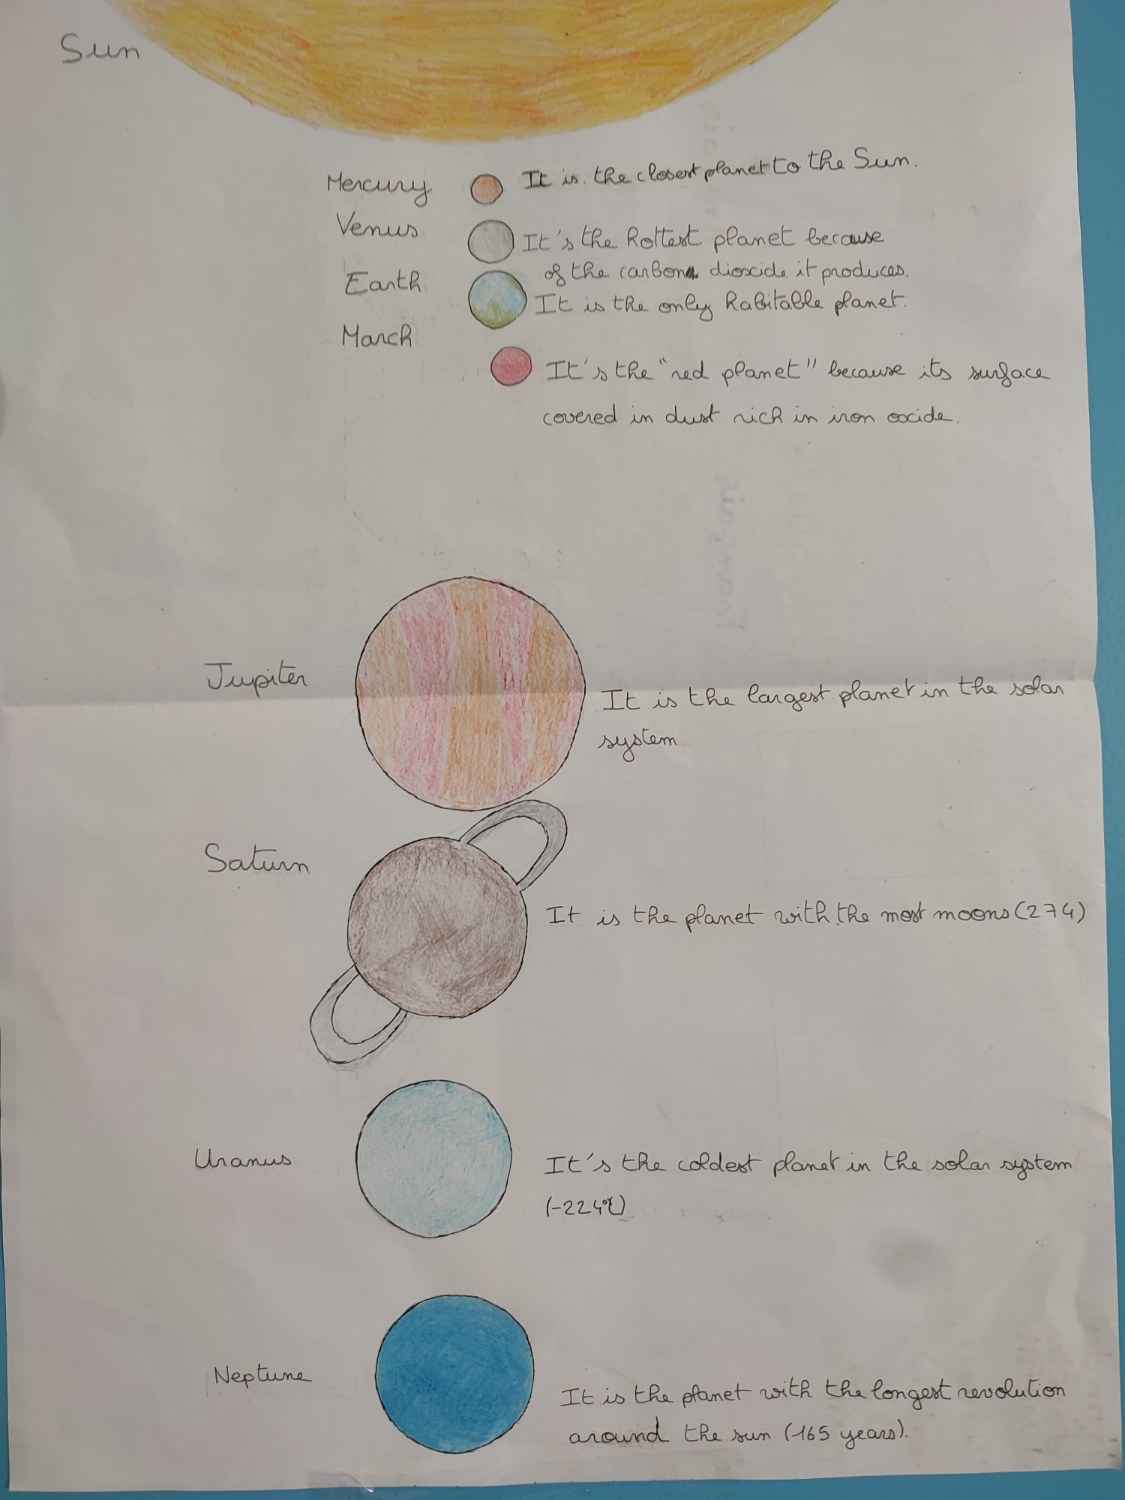 Sun
Mercury It is the closest planet to the Sun.
Venus It's the hottest planet because
of the carbon dioxide it produces.
Earth It is the only habitable planet.
March
It's the "red planet" because its surface
covered in dust rich in iron oxide.
Jupiter It is the largest planet in the solar
system
Saturn
It is the planet with the most moons (274)
Uranus It's the coldest planet in the solar system
(-224°C)
Neptune It is the planet with the longest revolution
around the sun (165 years).